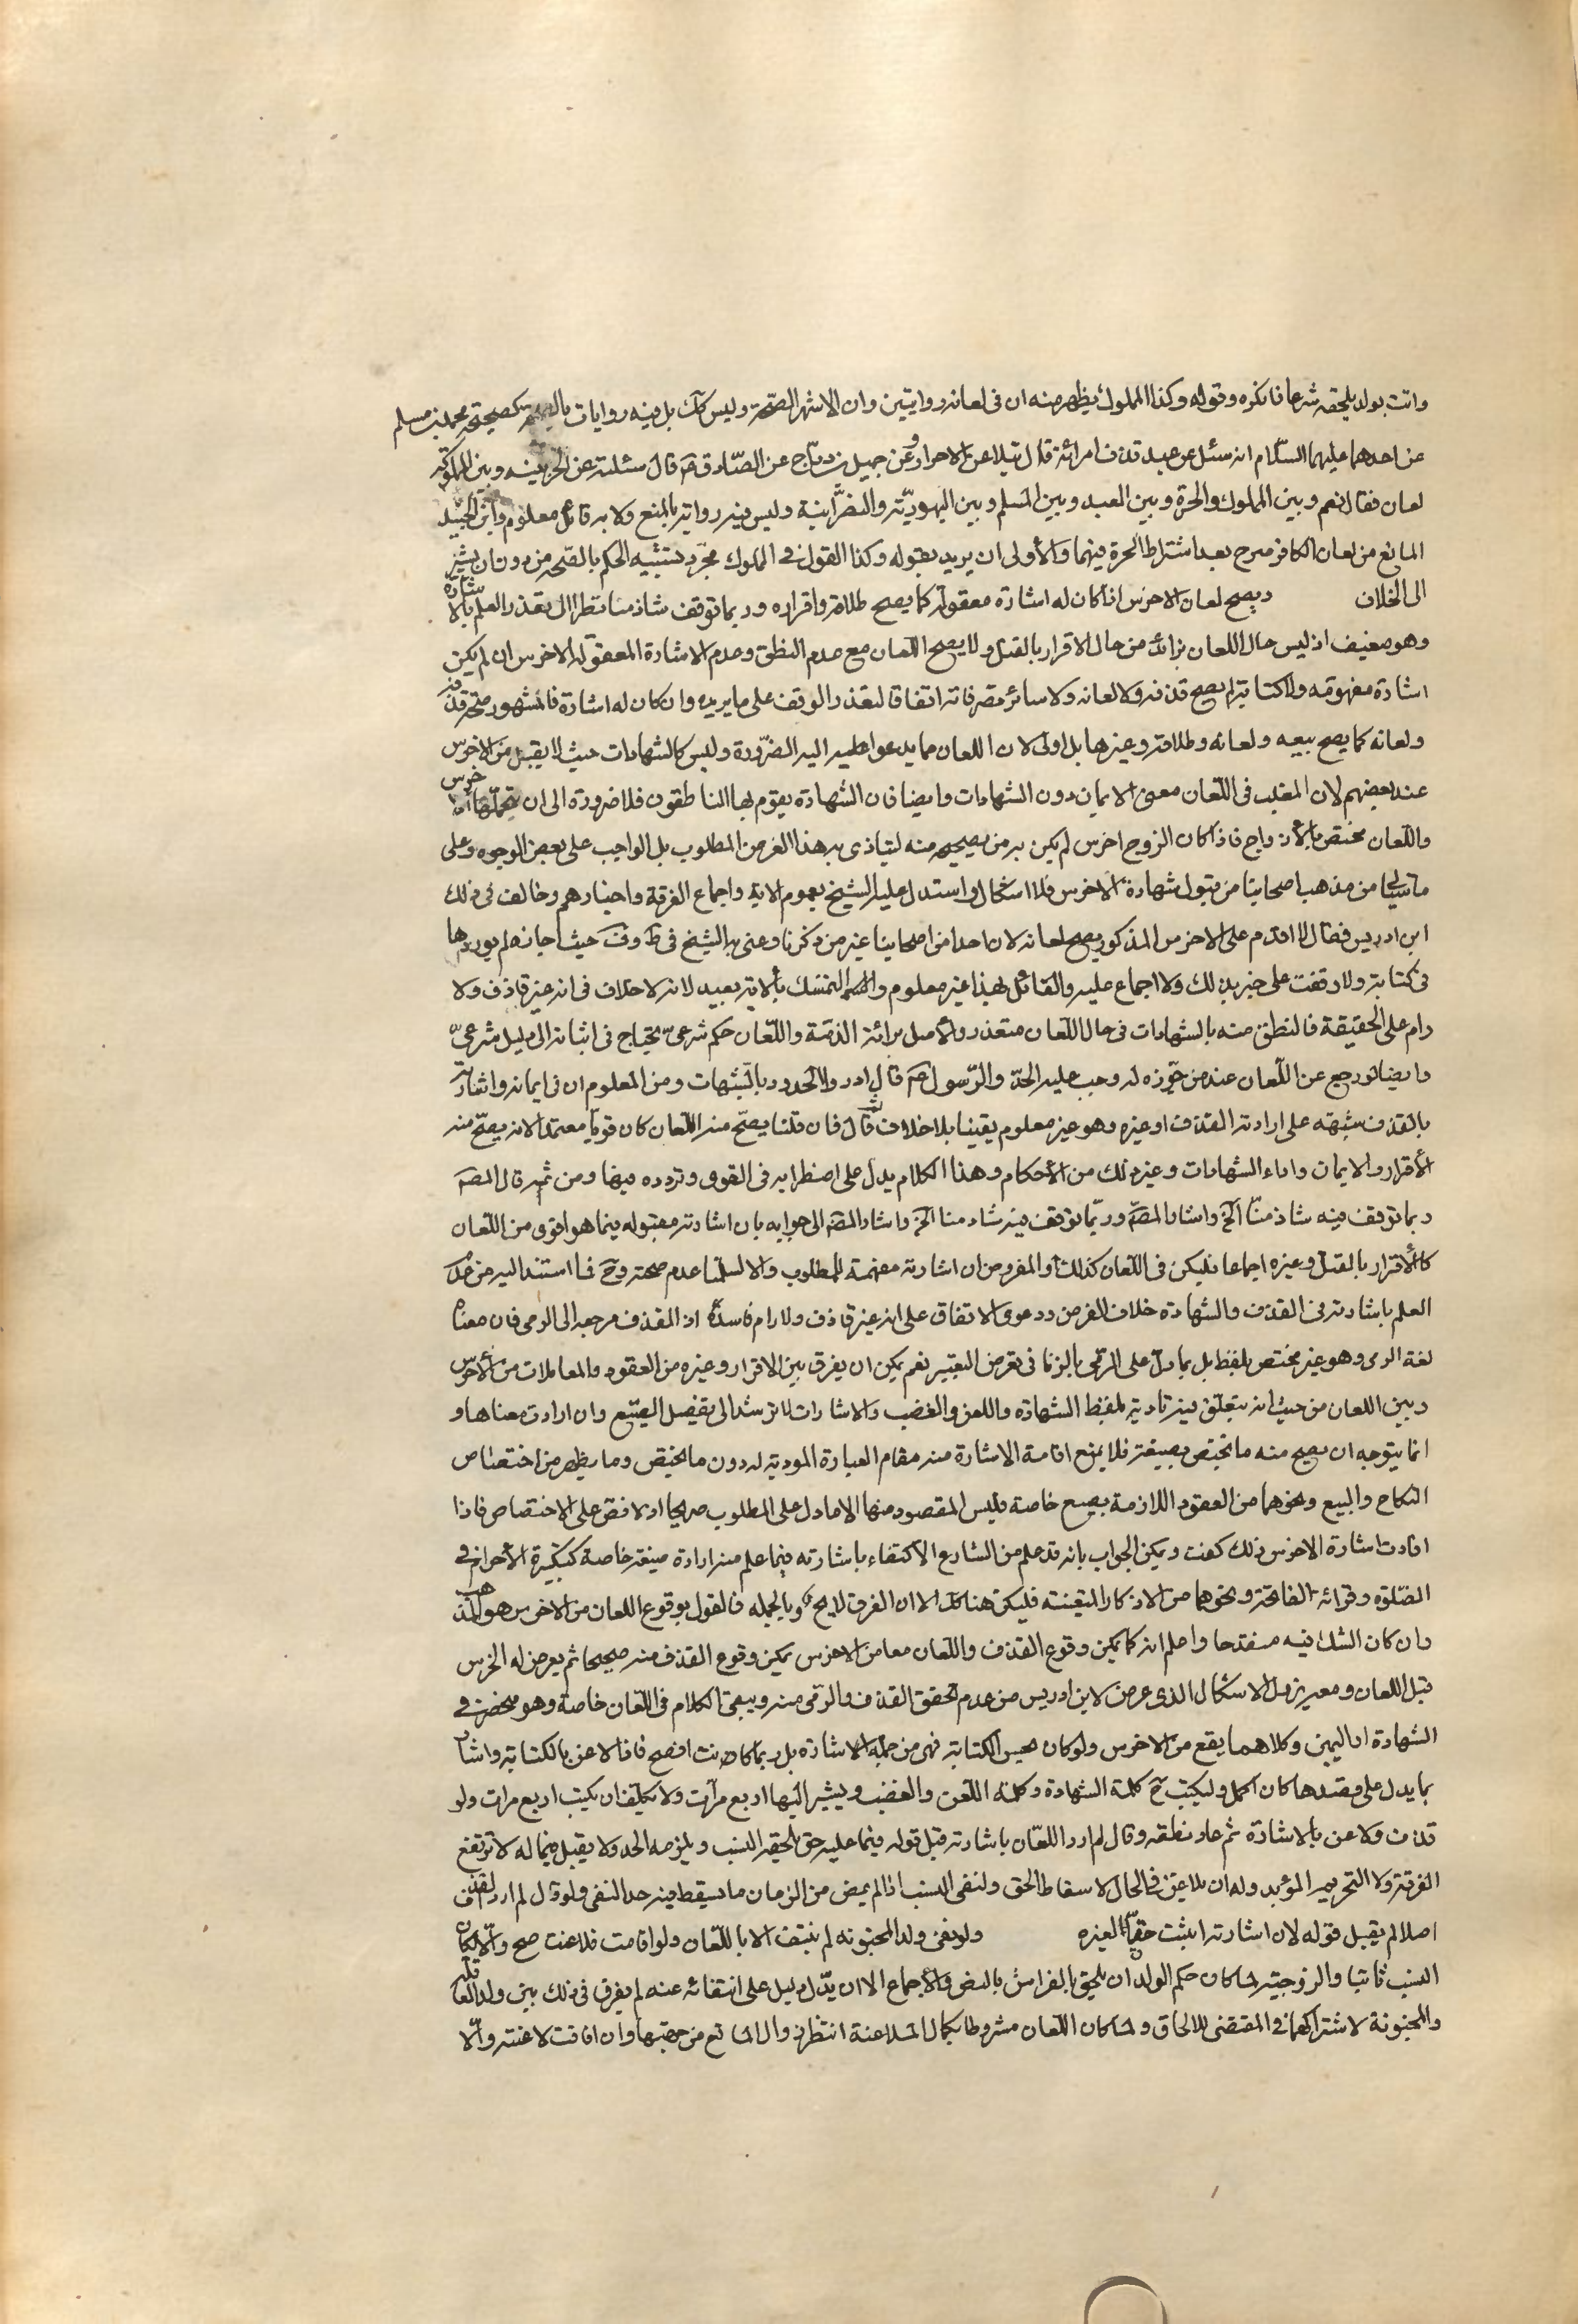 واتت بولد يلحقه شرعا فانكره وقوله وكذا المملوك يظهر منه ان فى لعانه روايتين وان الاشهر الصحّة وليس كك بل فيه روايات بالصحّة كصحيحة محمد بن مسلم
عن احدهما عليهما السّلام انه سئل عن عبد قذف امرائة قال يتلاعن الاحرار وعن جميل بن درّاج عن الصّادق ع قال سئلته عن الحر بينه وبين المملوكة
لعان فقال نعم وبين المملوك والحرة وبين العبد وبين المسلم وبين اليهوديّة والنصرانية وليس فيه رواية بالمنع ولا به قائل معلوم وابن الجنيد
المانع من لعان الكافر صرح بعد اشتراط الحرة فيهما والأولى ان يريد بقوله وكذا القول فى المملوك مجرّد تشبيه الحكم بالصّحة من دون ان يشير
الى الخلاف ويصح لعان الاخرس اذا كان له اشارة معقولة كما يصح طلاقه واقراره وربما توقف شاذ منا نظرا الى تعذر العلم بالاشارة
وهو ضعيف اذ ليس حال اللعان بزائد من حال الاقرار بالقتل ولا يصح اللّعان مع عدم النطق وعدم الاشارة المعقولة الاخرس ان لم يكن
اشارة مفهومة ولا كتابة لم يصح قذفه ولا لعانه ولا سائر تصرفاته اتفاقا لتعذر الوقف على ما يريده وان كان له اشارة فالمشهور صحّة قذفه
ولعانه كما يصح بيعه ولعانه وطلاقه وغيرها بل اولى لان اللعان مما يدعوا اليه الضّرورة وليس كالشهادات حيث لا يقبل من الاخرس
عند بعضهم لان المغلب فى اللّعان معنى الايمان دون الشهادات وايضا فان الشهادة يقوم بها الناطقون فلا ضرورة الى ان يتحمّلها الاخرس
واللّعان مختص بالأزواج فاذا كان الزوج اخرس لم يكن بد من تصحيحه منه ليتاذى به هذا الغرض المطلوب بل الواجب على بعض الوجوه وعلى
ما سياتى من مذهب اصحابنا من قبول شهادة الاخرس فلا اشكال واستدل عليه الشيخ بعموم الاية واجماع الفرقة واخبارهم وخالف فى ذلك
ابن ادريس فقال لا اقدم على الاخرس المذكور يصح لعانه لان احدا من اصحابنا غير من ذكرنا وعنى به الشيخ فى ظ وف حيث اجابه لم يوردها
فى كتابه ولا وقفت على خبر بذلك ولا اجماع عليه والقائل بهذا غير معلوم والتمسّك بالاية بعيد لانه لا خلاف فى انه غير قاذف ولا
رام على الحقيقة فالنطق منه بالشهادات فى حال اللّعان متعذر والأصل برائة الذمّة واللّعان حكم شرعىّ يحتاج فى اثباته الى دليل شرعىّ
وايضا لو رجع عن اللّعان عند من جوّزه له وجب عليه الحدّ والرّسول ص قال ادرؤا الحدود بالشّبهات ومن المعلوم ان فى ايمانه واشارته
بالقذف شبهة على ارادته القذف او غيره وهو غير معلوم يقينا بلا خلاف ثم قال فان قلنا يصحّ منه اللّعان كان قويّا معتمدا لانه يصحّ منه
الأقرار والايمان واداء الشهادات وغير ذلك من الأحكام وهذا الكلام يدل على اضطرابه فى القوى وتردده فيها ومن ثم قال المصَ
وربما توقف فيه شاذ منّا الخ واشار المصَ وربّما توقف فيه شاذ منا الخ واشار المصَ الى جوابه بان اشارته مقبوله فيما هو اقوى من اللّعان
كالأقرار بالقتل وغيره اجماعا فليكن فى اللّعان كذلك والمفروض ان اشارته مفهمة للمطلوب والا لسلّمنا عدم صحته وحَ فما استند اليه من عدم
العلم باشارته فى القذف والشهادة خلاف الفرض ودعوى الاتفاق على انه غير قاذف ولا رام فاسدة اذ القذف مرجعه الى الرمى فان معناه
لغة الرمى وهو غير مختص بلفظ بل بما دلّ على الرّمى بالزنا فى معرض التعيير نعم يمكن ان يفرق بين الاقرار وغيره من العقود والمعاملات من الأخرس
وبين اللعان من حيث انه يتعلّق فيه تادية بلفظ الشهادة واللعن والغضب والاشارات لا ترشد الى تفصيل الصّيغ وان ارادت معناها و
انما يتوجه ان يصح منه ما يختص بصيغة فلا يمنع اقامة الاشارة منه مقام العبارة المودية له دون ما يختص وما يظهر من اختصاص
النكاح والبيع ونحوهما من العقود اللازمة بصيغ خاصة فليس المقصود منها الا ما دل على المطلوب صريحا اذ لا نص على الاختصاص فاذا
افادت اشارة الاخرس ذلك كفت ويمكن الجواب بانه قد علم من الشارع الأكتفاء باشارته فيما علم منه ارادة صيغة خاصة كتكبيرة الأحرام فى
الصّلوة وقرائة الفاتحة ونحوهما من الاذكار المتعينة فليكن هنا كك الا ان الفرق لايح وبالجمله فالقول بوقوع اللعان من الاخرس هو المذهب
وان كان الشك فيه منقدحا واعلم انه كما يمكن وقوع القذف واللّعان معا من الاخرس يمكن وقوع القذف منه صحيحا ثم يعرض له الخرس
قبل اللعان ومعه يزول الاشكال الذى عرض لابن ادريس من عدم تحقق القذف والرّمى منه ويبقى الكلام فى اللّعان خاصة وهو منحصر فى
الشهادة او اليمين وكلاهما يقع من الاخرس ولو كان يحسن الكتابة فهى من جملة الاشارة بل ربما كانت افصح فاذا لاعن بالكتابة واشار
بما يدل على قصدها كان اكمل وليكتب حَ كلمة الشهادة وكلمة اللّعن والغضب ويشير اليها اربع مرات ولا يكلّف ان يكتب اربع مرات ولو
قذف ولاعن بالاشارة ثم عاد نطقه وقال لم ارد اللّعان باشارته قبل قوله فيما عليه حتى يلحقه النسب ويلزمه الحد ولا يقبل فيما له لا ترتفع
الفرقة ولا التحريم المؤبد وله ان يلاعن فى الحال لاسقاط الحق ولنفى النسب اذا لم يمض من الزمان ما يسقط فيه حد النفى ولو قال لم ارد القذف
اصلا لم يقبل قوله لان اشارته اثبتت حقّا لغيره ولو نفى ولد المجنونه لم ينتف الا باللّعان ولو افاقت فلاعنت صح والّا كان
النسب ثابتا والزوجية لما كان حكم الولد ان يلحق بالفراش بالنص والأجماع الا ان يدّل دليل على انتفائه عنه لم يفرق فى ذلك بين ولد العاقلة
والمجنونة لاشتراكهما فى المقتضى للالحاق ولما كان اللّعان مشروطا بكمال الملاعنة انتظر زوال المانع من جهتها وان افاقت لاعنته والّا